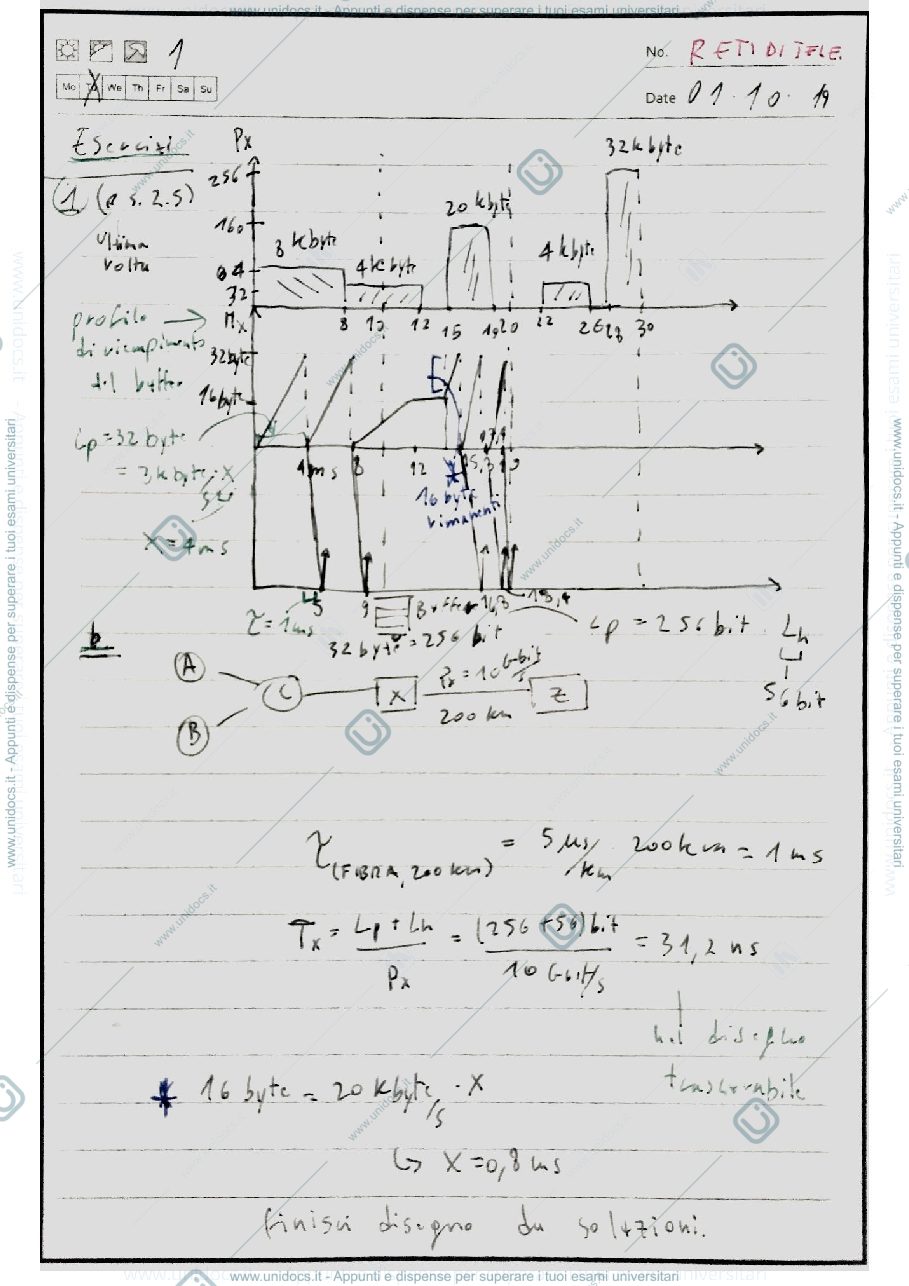 www.unidocs.it - Appunti e dispense per superare i tuoi esami universitari
1
No. RETI DI TELE.
Mo Tu We Th Fr Sa Su
Date 01.10.19
Esercizi
Px
32 kbyte
256
1 (es. 2.5)
20 kbyte
160
ultima
volta
8 kbyte
4 kbyte
4 kbyte
64
32
8 10 12 15 19 20 22 26 28 30
profilo
di riempimento
del buffer
Mx
32 byte
16 byte
Lp = 32 byte
= 8 kbyte/s · X
X = 4 ms
4 ms 8 12
16 byte
rimanenti
5 9
τ = 1 ms
Buffer
32 byte = 256 bit
Lp = 256 bit
Lh
56 bit
b
A
B
C
X
Px = 10 Gbit/s
200 km
Z
τ(FIBRA, 200 km) = 5 μs/km 200 km = 1 ms
Tx = Lp + Lh / Px = (256 + 56) bit / 10 Gbit/s = 31,2 ns
nel disegno
trascurabile
* 16 byte = 20 kbyte/s · X
↳ X = 0,8 ms
finisci disegno da soluzioni.
www.unidocs.it - Appunti e dispense per superare i tuoi esami universitari